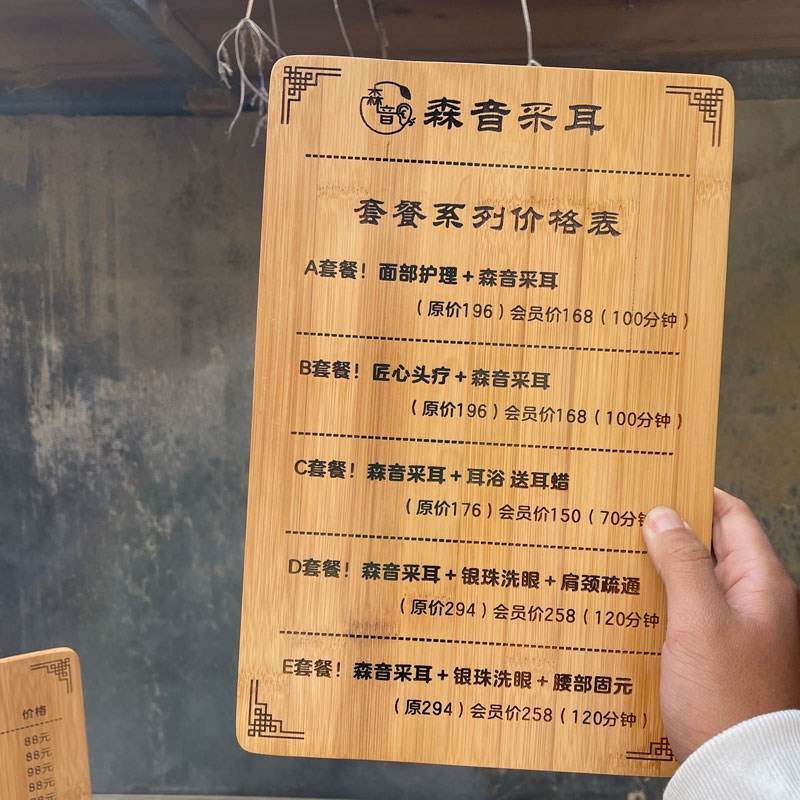 森音
森音采耳
套餐系列价格表
A套餐！面部护理+森音采耳
（原价196）会员价168（100分钟）
B套餐！匠心头疗+森音采耳
（原价196）会员价168（100分钟）
C套餐！森音采耳+耳浴 送耳蜡
（原价176）会员价150（70分钟
D套餐！森音采耳+银珠洗眼+肩颈疏通
（原价294）会员价258（120分钟
E套餐！森音采耳+银珠洗眼+腰部固元
（原294）会员价258（120分钟）
价格
88元
88元
98元
88元